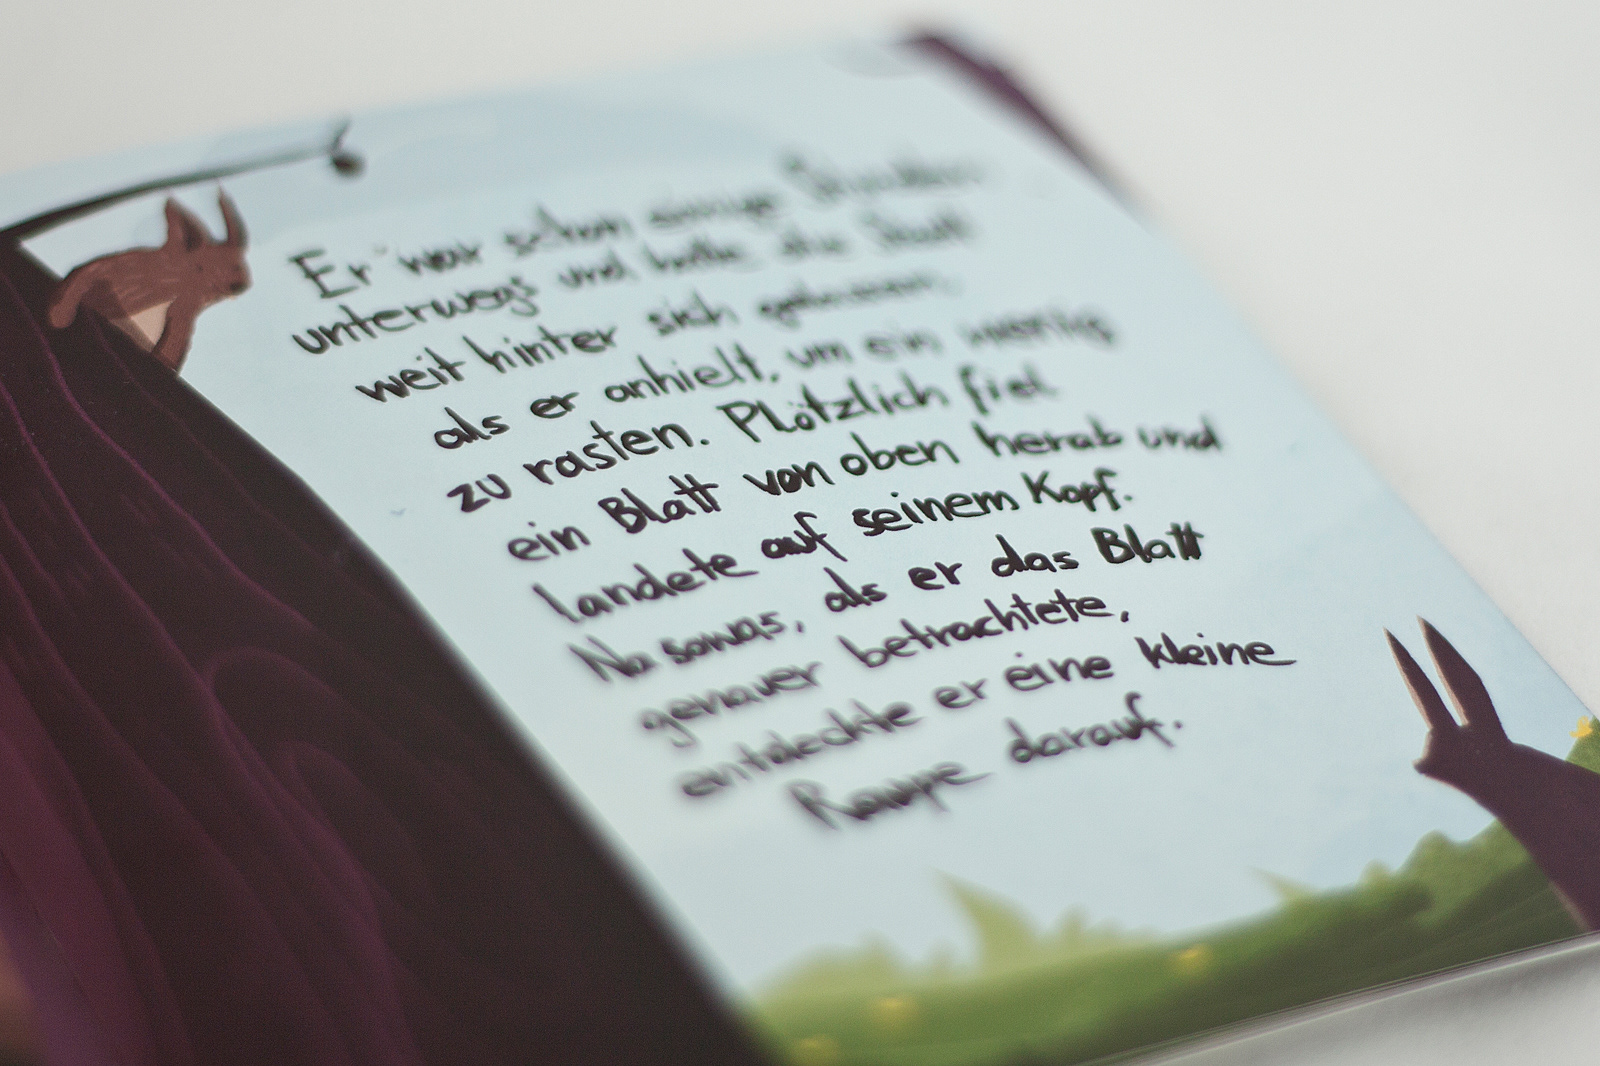 Er war schon einige Stunden
unterwegs und hatte die Stadt
weit hinter sich gelassen,
als er anhielt, um ein wenig
zu rasten. Plötzlich fiel
ein Blatt von oben herab und
landete auf seinem Kopf.
Na sowas, als er das Blatt
genauer betrachtete,
entdeckte er eine kleine
Raupe darauf.